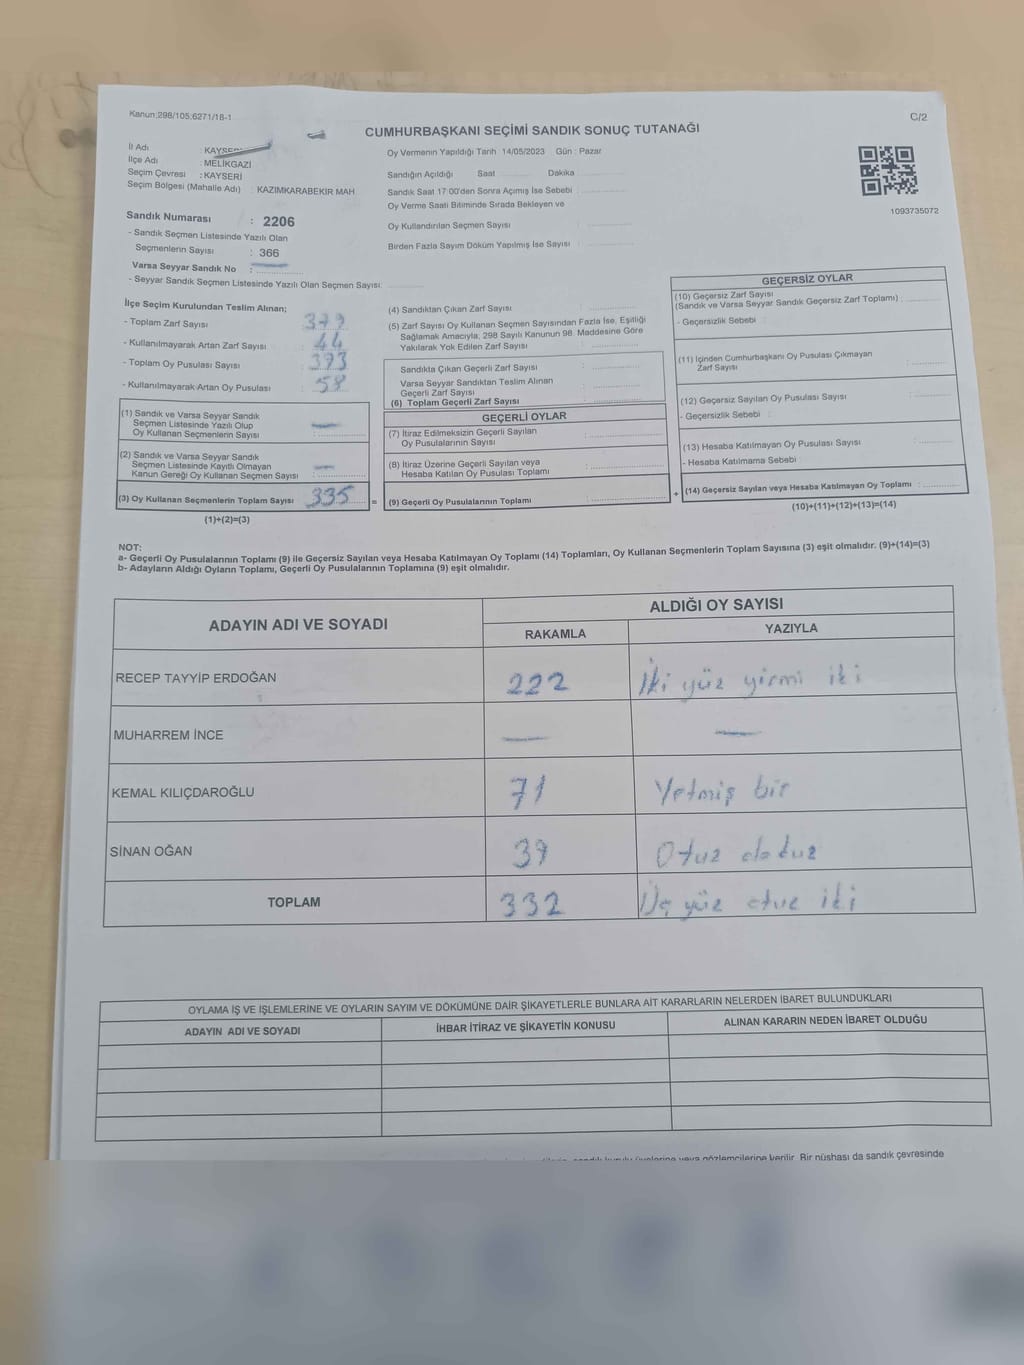 Kanun:298/105;6271/18-1
C/2
CUMHURBAŞKANI SEÇİMİ SANDIK SONUÇ TUTANAĞI
İl Adı : KAYSERİ
İlçe Adı : MELİKGAZİ
Seçim Çevresi : KAYSERİ
Seçim Bölgesi (Mahalle Adı) : KAZIMKARABEKIR MAH.
Oy Vermenin Yapıldığı Tarih : 14/05/2023 Gün : Pazar
Sandığın Açıldığı Saat Dakika
Sandık Saat 17:00'den Sonra Açılmış İse Sebebi :
Oy Verme Saati Bitiminde Sırada Bekleyen ve
Oy Kullandırılan Seçmen Sayısı :
Birden Fazla Sayım Döküm Yapılmış İse Sayısı :
1093735072
Sandık Numarası : 2206
- Sandık Seçmen Listesinde Yazılı Olan
Seçmenlerin Sayısı : 366
Varsa Seyyar Sandık No :
- Seyyar Sandık Seçmen Listesinde Yazılı Olan Seçmen Sayısı:
İlçe Seçim Kurulundan Teslim Alınan;
- Toplam Zarf Sayısı : 379
- Kullanılmayarak Artan Zarf Sayısı : 44
- Toplam Oy Pusulası Sayısı : 393
- Kullanılmayarak Artan Oy Pusulası : 58
(1) Sandık ve Varsa Seyyar Sandık
Seçmen Listesinde Yazılı Olup
Oy Kullanan Seçmenlerin Sayısı : —
(2) Sandık ve Varsa Seyyar Sandık
Seçmen Listesinde Kayıtlı Olmayan
Kanun Gereği Oy Kullanan Seçmen Sayısı : —
(3) Oy Kullanan Seçmenlerin Toplam Sayısı : 335
(1)+(2)=(3)
=
(4) Sandıktan Çıkan Zarf Sayısı :
(5) Zarf Sayısı Oy Kullanan Seçmen Sayısından Fazla İse, Eşitliği
Sağlamak Amacıyla, 298 Sayılı Kanunun 98. Maddesine Göre
Yakılarak Yok Edilen Zarf Sayısı :
Sandıkta Çıkan Geçerli Zarf Sayısı :
Varsa Seyyar Sandıktan Teslim Alınan
Geçerli Zarf Sayısı :
(6) Toplam Geçerli Zarf Sayısı :
GEÇERLİ OYLAR
(7) İtiraz Edilmeksizin Geçerli Sayılan
Oy Pusulalarının Sayısı :
(8) İtiraz Üzerine Geçerli Sayılan veya
Hesaba Katılan Oy Pusulası Toplamı :
(9) Geçerli Oy Pusulalarının Toplamı :
+
GEÇERSİZ OYLAR
(10) Geçersiz Zarf Sayısı
(Sandık ve Varsa Seyyar Sandık Geçersiz Zarf Toplamı) :
- Geçersizlik Sebebi :
(11) İçinden Cumhurbaşkanı Oy Pusulası Çıkmayan
Zarf Sayısı :
(12) Geçersiz Sayılan Oy Pusulası Sayısı :
- Geçersizlik Sebebi :
(13) Hesaba Katılmayan Oy Pusulası Sayısı :
- Hesaba Katılmama Sebebi :
(14) Geçersiz Sayılan veya Hesaba Katılmayan Oy Toplamı :
(10)+(11)+(12)+(13)=(14)
NOT:
a- Geçerli Oy Pusulalarının Toplamı (9) ile Geçersiz Sayılan veya Hesaba Katılmayan Oy Toplamı (14) Toplamları, Oy Kullanan Seçmenlerin Toplam Sayısına (3) eşit olmalıdır. (9)+(14)=(3)
b- Adayların Aldığı Oyların Toplamı, Geçerli Oy Pusulalarının Toplamına (9) eşit olmalıdır.
ADAYIN ADI VE SOYADI
ALDIĞI OY SAYISI
RAKAMLA YAZIYLA
RECEP TAYYİP ERDOĞAN 222 İki yüz yirmi iki
MUHARREM İNCE — —
KEMAL KILIÇDAROĞLU 71 Yetmiş bir
SİNAN OĞAN 39 Otuz dokuz
TOPLAM 332 Üç yüz otuz iki
OYLAMA İŞ VE İŞLEMLERİNE VE OYLARIN SAYIM VE DÖKÜMÜNE DAİR ŞİKAYETLERLE BUNLARA AİT KARARLARIN NELERDEN İBARET BULUNDUKLARI
ADAYIN ADI VE SOYADI İHBAR İTİRAZ VE ŞİKAYETİN KONUSU ALINAN KARARIN NEDEN İBARET OLDUĞU
sandık kurulu üyelerine veya gözlemcilerine verilir. Bir nüshası da sandık çevresinde